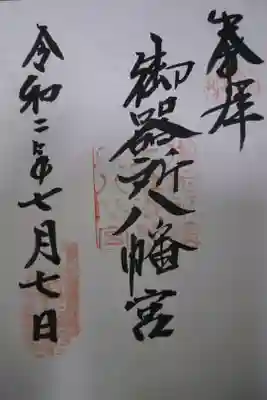 奉拝
御器所八幡宮
令和二年七月七日